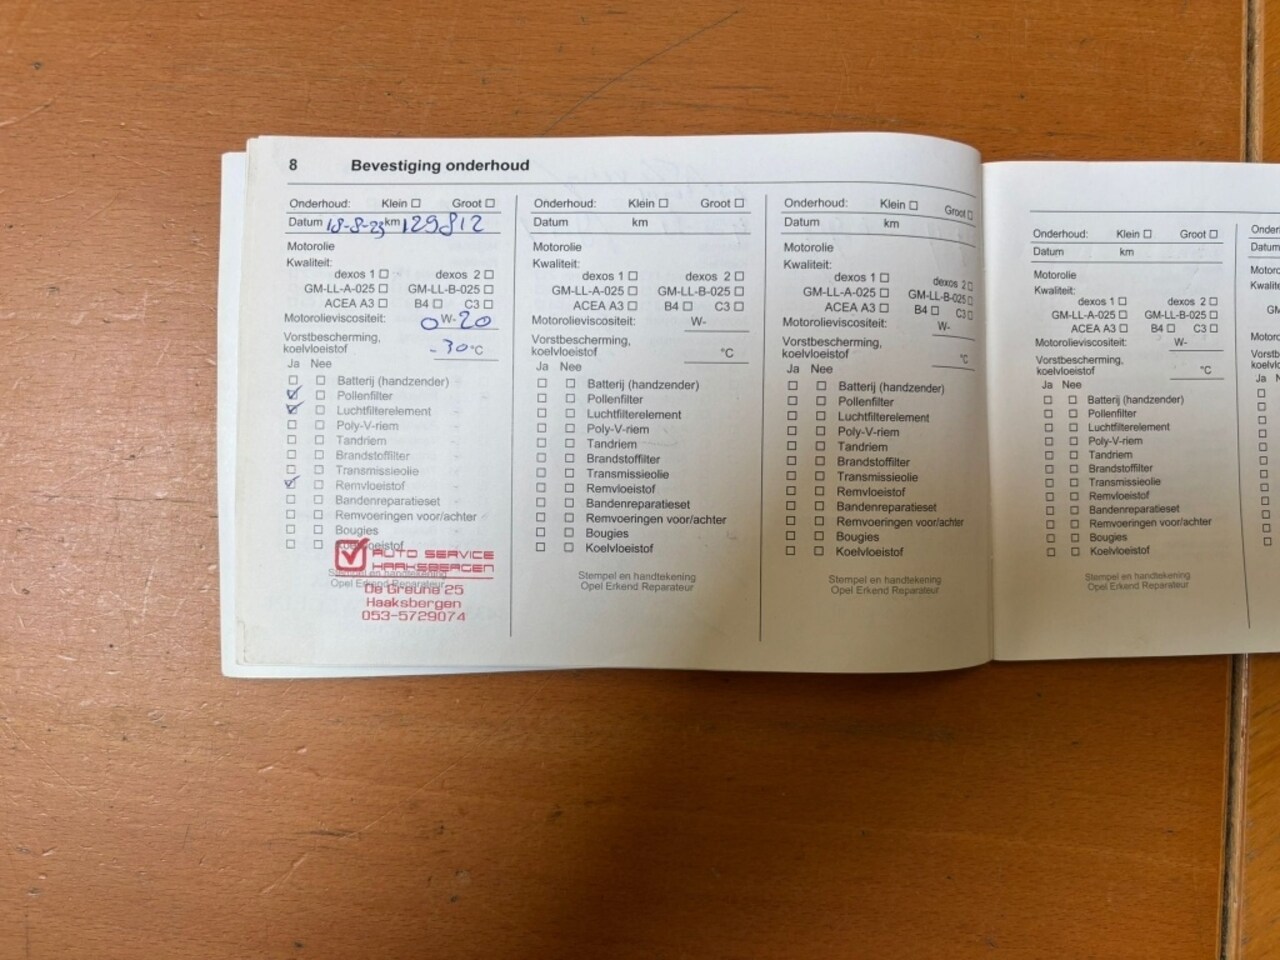 8 Bevestiging onderhoud
Onderhoud: Klein ☐ Groot ☐
Datum 18-8-23 km 129812
Motorolie
Kwaliteit:
dexos 1 ☐ dexos 2 ☐
GM-LL-A-025 ☐ GM-LL-B-025 ☐
ACEA A3 ☐ B4 ☐ C3 ☐
Motorolieviscositeit: 0 W- 20
Vorstbescherming,
koelvloeistof -30 °C
Ja Nee
☐ ☐ Batterij (handzender)
☑ ☐ Pollenfilter
☑ ☐ Luchtfilterelement
☐ ☐ Poly-V-riem
☐ ☐ Tandriem
☐ ☐ Brandstoffilter
☐ ☐ Transmissieolie
☑ ☐ Remvloeistof
☐ ☐ Bandenreparatieset
☐ ☐ Remvoeringen voor/achter
☐ ☐ Bougies
☐ ☐ Koelvloeistof
AUTO SERVICE
HAAKSBERGEN
Stempel en handtekening
Opel Erkend Reparateur
De Greune 25
Haaksbergen
053-5729074
Onderhoud: Klein ☐ Groot ☐
Datum km
Motorolie
Kwaliteit:
dexos 1 ☐ dexos 2 ☐
GM-LL-A-025 ☐ GM-LL-B-025 ☐
ACEA A3 ☐ B4 ☐ C3 ☐
Motorolieviscositeit: W-
Vorstbescherming,
koelvloeistof °C
Ja Nee
☐ ☐ Batterij (handzender)
☐ ☐ Pollenfilter
☐ ☐ Luchtfilterelement
☐ ☐ Poly-V-riem
☐ ☐ Tandriem
☐ ☐ Brandstoffilter
☐ ☐ Transmissieolie
☐ ☐ Remvloeistof
☐ ☐ Bandenreparatieset
☐ ☐ Remvoeringen voor/achter
☐ ☐ Bougies
☐ ☐ Koelvloeistof
Stempel en handtekening
Opel Erkend Reparateur
Onderhoud: Klein ☐ Groot ☐
Datum km
Motorolie
Kwaliteit:
dexos 1 ☐ dexos 2 ☐
GM-LL-A-025 ☐ GM-LL-B-025 ☐
ACEA A3 ☐ B4 ☐ C3 ☐
Motorolieviscositeit: W-
Vorstbescherming,
koelvloeistof °C
Ja Nee
☐ ☐ Batterij (handzender)
☐ ☐ Pollenfilter
☐ ☐ Luchtfilterelement
☐ ☐ Poly-V-riem
☐ ☐ Tandriem
☐ ☐ Brandstoffilter
☐ ☐ Transmissieolie
☐ ☐ Remvloeistof
☐ ☐ Bandenreparatieset
☐ ☐ Remvoeringen voor/achter
☐ ☐ Bougies
☐ ☐ Koelvloeistof
Stempel en handtekening
Opel Erkend Reparateur
Onderhoud: Klein ☐ Groot ☐
Datum km
Motorolie
Kwaliteit:
dexos 1 ☐ dexos 2 ☐
GM-LL-A-025 ☐ GM-LL-B-025 ☐
ACEA A3 ☐ B4 ☐ C3 ☐
Motorolieviscositeit: W-
Vorstbescherming,
koelvloeistof °C
Ja Nee
☐ ☐ Batterij (handzender)
☐ ☐ Pollenfilter
☐ ☐ Luchtfilterelement
☐ ☐ Poly-V-riem
☐ ☐ Tandriem
☐ ☐ Brandstoffilter
☐ ☐ Transmissieolie
☐ ☐ Remvloeistof
☐ ☐ Bandenreparatieset
☐ ☐ Remvoeringen voor/achter
☐ ☐ Bougies
☐ ☐ Koelvloeistof
Stempel en handtekening
Opel Erkend Reparateur
Datum
Ja